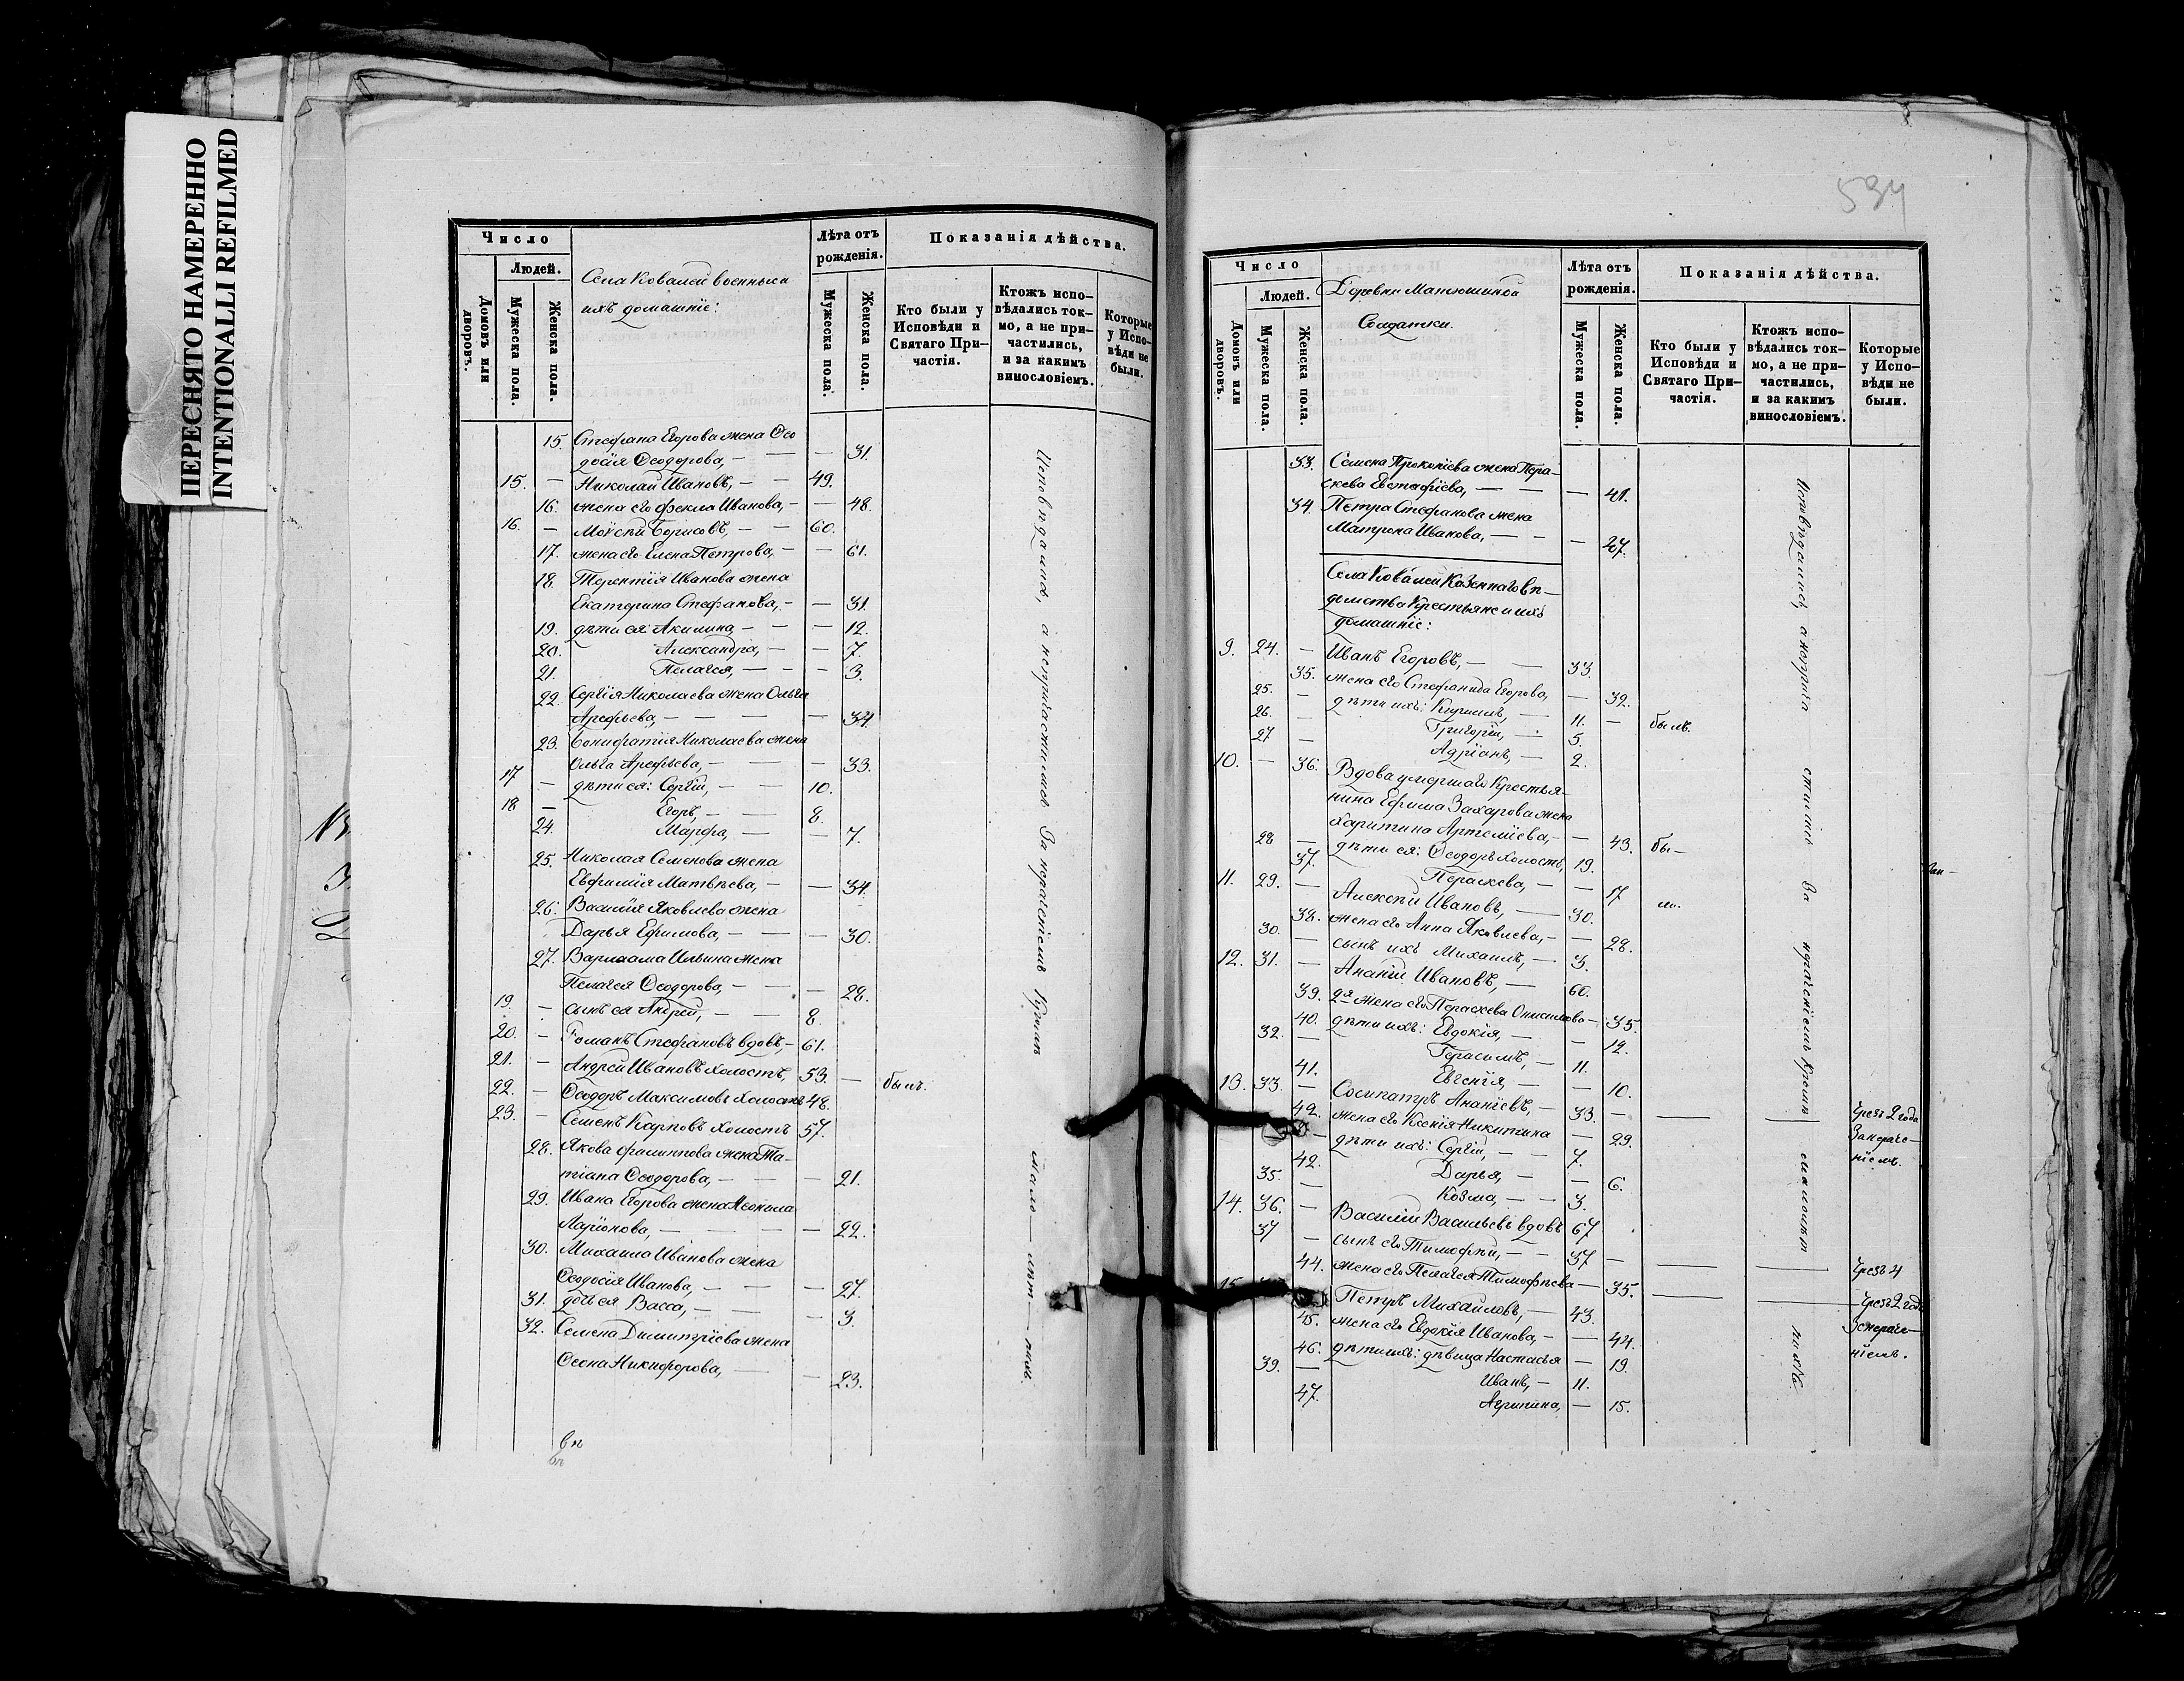 ПЕРЕСНЯТО НАМЕРЕННО
INTENTIONALLI REFILMED
Число
Людей.
Домовъ или дворовъ.
Мужеска пола.
Женска пола.
Села Ковалей военные и
ихъ домашніе:
Лѣта отъ рожденія.
Мужеска пола.
Женска пола.
Показанія дѣйства.
Кто были у Исповѣди и Святаго При-частія.
Ктожъ испо-вѣдались ток-мо, а не при-частились, и за какимъ винословіемъ.
Которые у Испо-вѣди не были.
15. Стефана Егорова жена Ѳео
досія Ѳеодорова, — — — 31.
15. — Николай Ивановъ, — — 49.
16. жена его Фекла Иванова, — — 48.
16. — Моѵсей Борисовъ, — — 60.
17. жена его Елена Петрова, — — 61.
18. Терентія Иванова жена
Екатерина Стефанова, — — 31.
19. дѣти ея: Акилина, — — 12.
20. Александра, — — 7.
21. Пелагея, — — — 3.
22. Сергія Николаева жена Ольга
Арефьева, — — — — 34.
23. Вонифатія Николаева жена
Ольга Арефьева, — — — 33.
17 — дѣти ея: Сергій, — — 10.
18 — Егоръ, — — 8.
24. Марфа, — — 7.
25. Николая Семенова жена
Евфимія Матвѣева, — — 34.
26. Василія Яковлева жена
Дарья Ефимова, — — — 30.
27. Варлаама Ильина жена
Пелагея Ѳеодорова, — — — 28.
19. — сынъ ея Андрей, — — 8.
20. — Романъ Стефановъ вдовъ, — 61.
21. — Андрей Ивановъ холостъ, 53. — былъ.
22. — Ѳеодоръ Максимовъ холостъ 48.
23. — Семенъ Карповъ холостъ 57.
28. Якова Филиппова жена Та-
тіана Ѳеодорова, — — — 21.
29. Ивана Егорова жена Леонила
Ларіонова, — — — 22.
30. Михаила Иванова жена
Ѳеодосія Иванова, — — — 27.
31. дочь ея Васса, — — — 3.
32. Семена Димитріева жена
Ѳеона Никифорова, — — 23.
Исповѣдались, а непричастились За нераченіемъ Кромѣ мало — лѣт — нихъ.
594
Число
Людей.
Домовъ или дворовъ.
Мужеска пола.
Женска пола.
Деревни Матюшиной
Солдатки.
Лѣта отъ рожденія.
Мужеска пола.
Женска пола.
Показанія дѣйства.
Кто были у Исповѣди и Святаго При-частія.
Ктожъ испо-вѣдались ток-мо, а не при-частились, и за какимъ винословіемъ.
Которые у Испо-вѣди не были.
33. Семена Прокопіева жена Пара-
скева Евстафіева, — — — 41.
34. Петра Стефанова жена
Матрона Иванова, — — — 27.
Села Ковалей Казеннаго вѣ—
домства Крестьяне и ихъ
домашніе:
9. 24. — Иванъ Егоровъ, — — 33.
35. жена его Стефанида Егорова, — 32.
25. — дѣти ихъ: Кириллъ, — 11. — былъ.
26. — Григорій, — 5.
27 — Адріанъ, — 2.
10. — 36. Вдова умершаго Крестья-
нина Ефима Захарова жена
Харитина Артеміева, — — 43. бы—
28 — дѣти ея: Ѳеодоръ холостъ, 19.
37. Параскева, — — 17 ли.
11. 29. — Алексѣй Ивановъ, — 30.
38. жена его Анна Яковлева, — — 28.
30. — сынъ ихъ Михаилъ, — 3.
12. 31. — Ананій Ивановъ, — 60.
39. 2я жена его Параскева Онисимова — 35.
40. дѣти ихъ: Евдокія, — — 12.
32. — Герасимъ, — 11.
41. Евгенія, — — 10.
13. 33. — Сосипатръ Ананіевъ, — 33. — чрезъ 2 года
42. жена его Ксенія Никитина — 29. За нераче—
— дѣти ихъ: Сергій, — — 7. ніемъ.
42. Дарья, — — 6.
35. — Козма, — — 3.
14. 36. — Василій Васильевъ вдовъ 67
37 — сынъ его Тимофѣй, — — 37 — чрезъ 4
44. жена его Пелагея Тимофѣева — 35. — чрезъ 2 года
15. Петръ Михайловъ, — 43. За нераче—
45. жена его Евдокія Иванова, — — 44. ніемъ.
46. дѣти ихъ: дѣвица Настасья — 19.
39. — Иванъ, — 11.
47. Агрипина, — 15.
Исповѣдались, а неприча стились За нераченіемъ Кромѣ малолѣт нихъ.